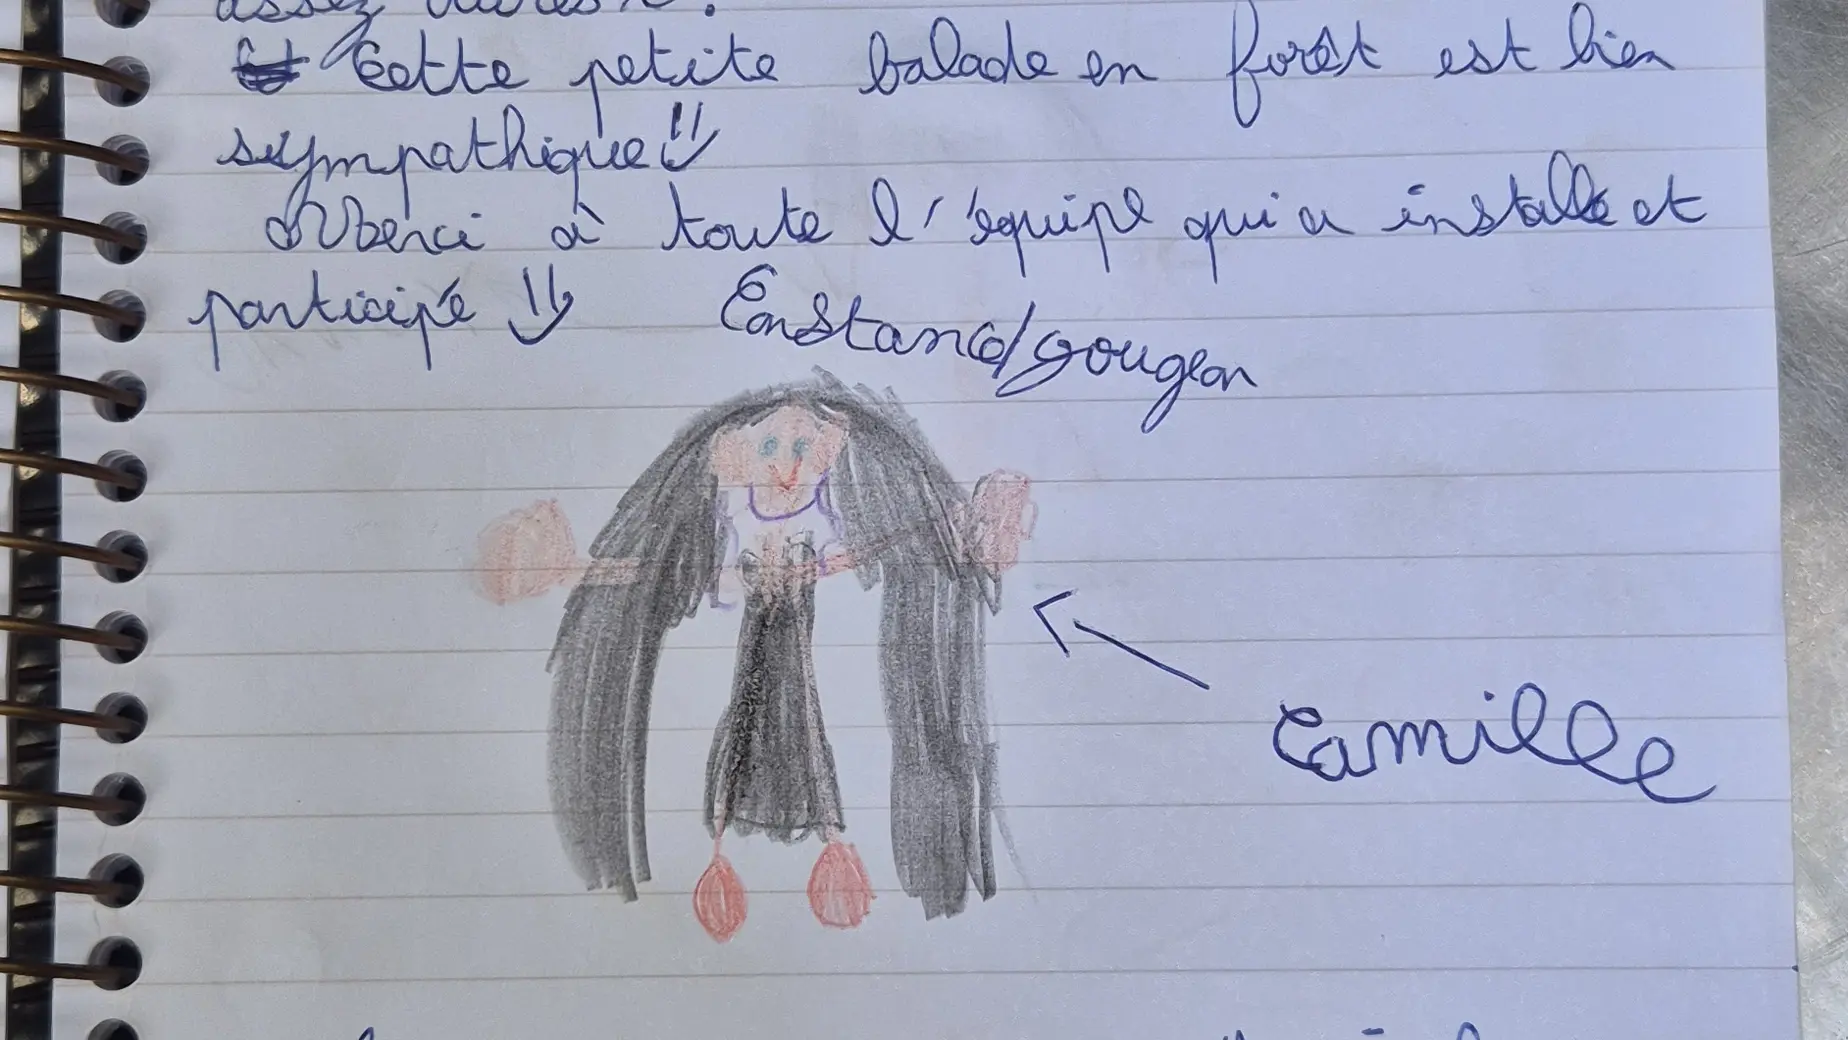 assez
Cette petite balade en forêt est bien
sympathique
Merci à toute l'équipe qui a installé et
participé
Constance/gougeon
Camille